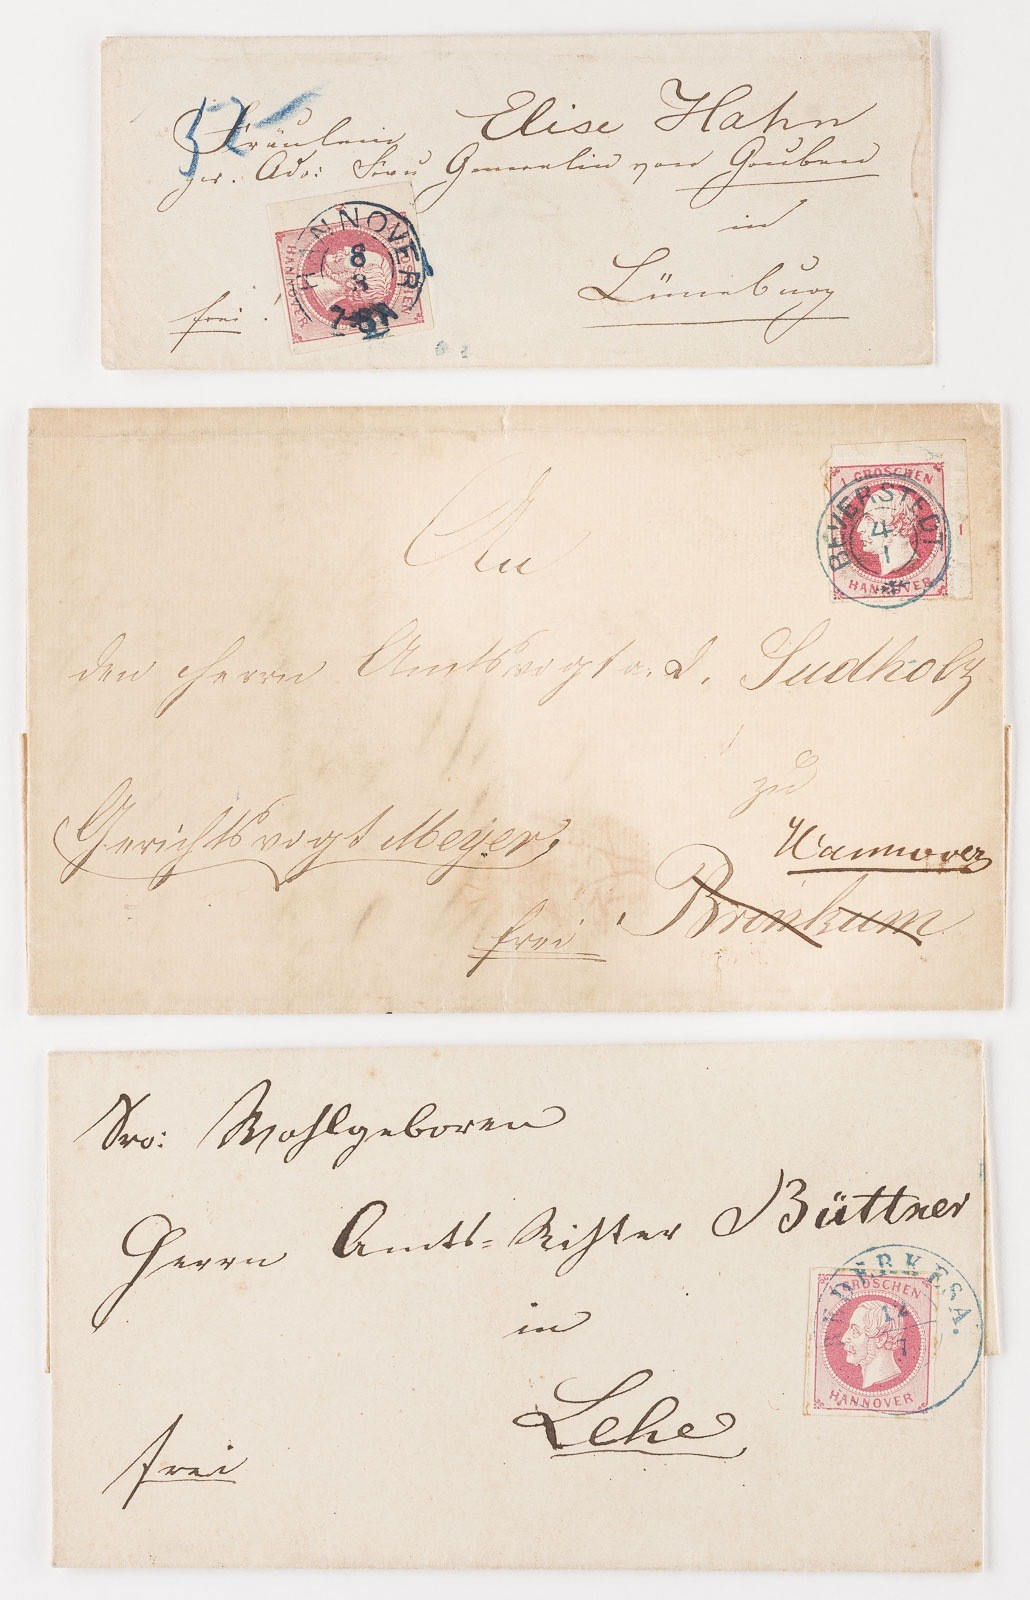 Fräulein Elise Hahn
per. Adr: Frau Generalin von Gruben
in
Lüneburg
frei!
HANNOVER
8
8
GROSCHEN
HANNOVER
1 GROSCHEN
HANNOVER
BEVERSTEDT
4
1
An
den Herrn Amtsvogt a. D. Sudholz
zu
Hannover
Gerichtsvogt Meyer,
Brinkum
frei
Sro: Wohlgeboren
Herrn Amts=Richter Büttner
GROSCHEN
HANNOVER
BEDERKESA.
in
Lehe
frei